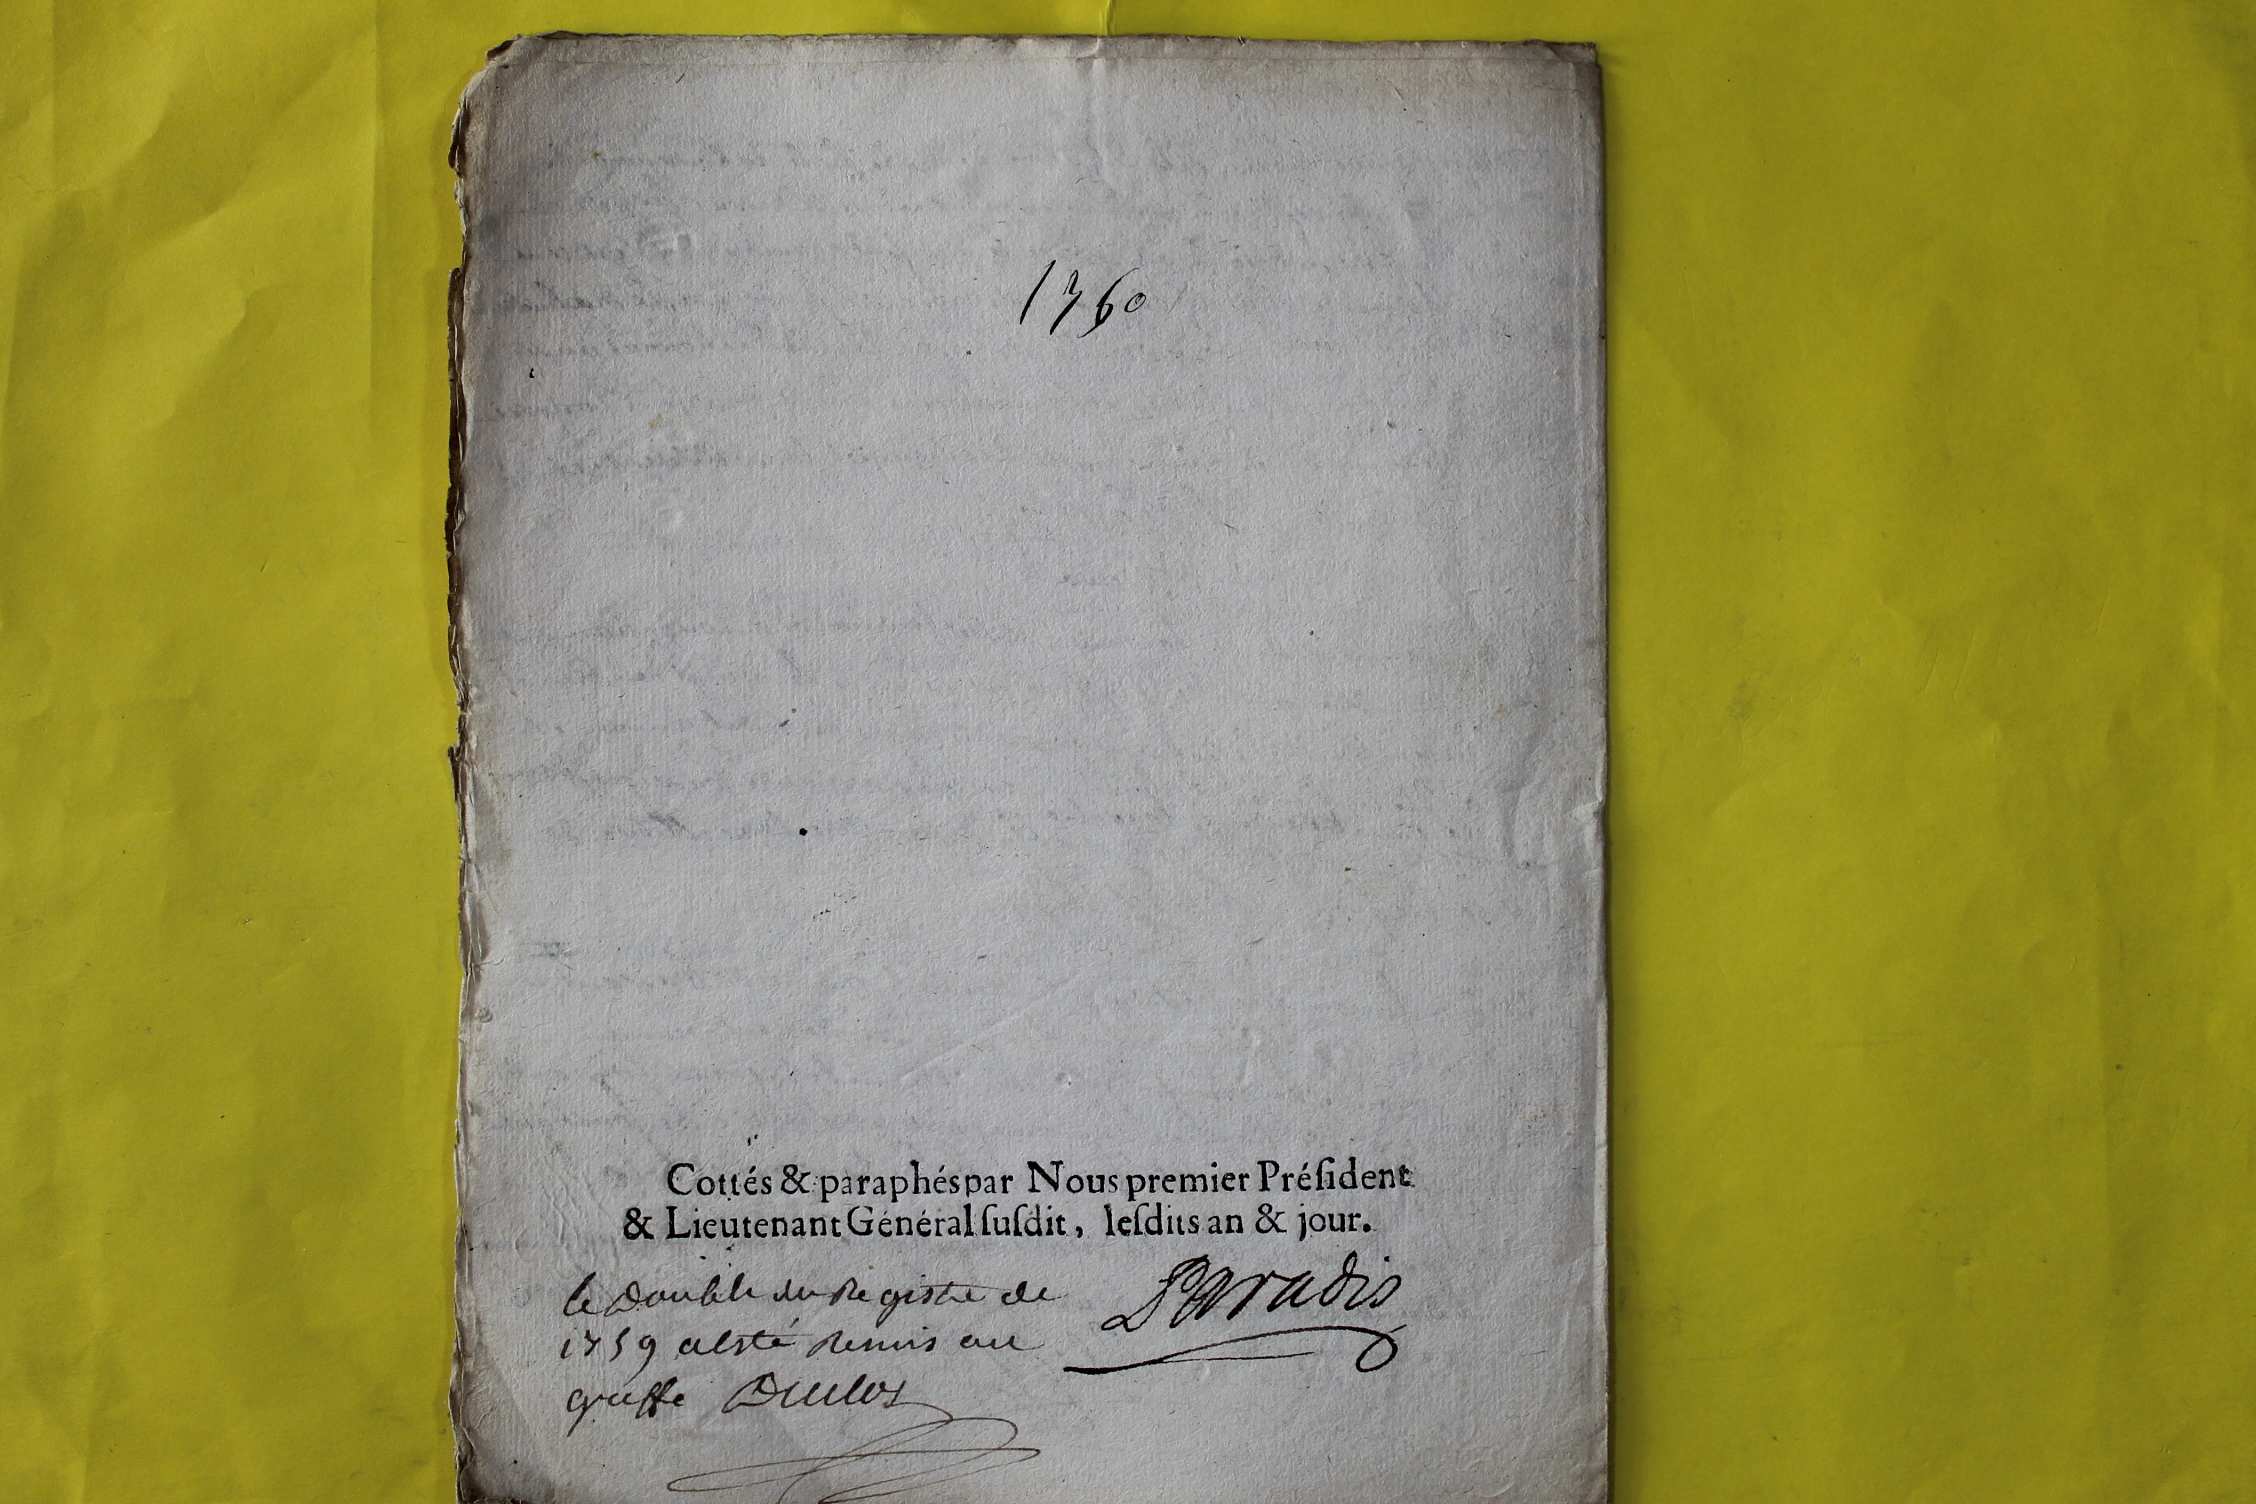 1760
Cottés & paraphés par Nous premier Préſident
& Lieutenant Général ſuſdit, leſdits an & jour.
le Double du Registre de
1759 a esté remis au
greffe Duclos
Paradis